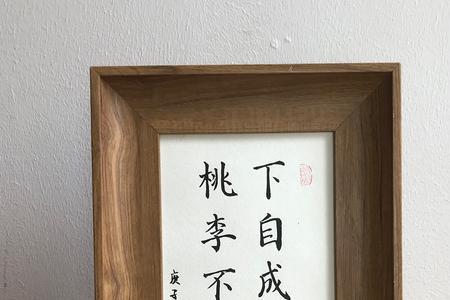 下自成
桃李不
庚子